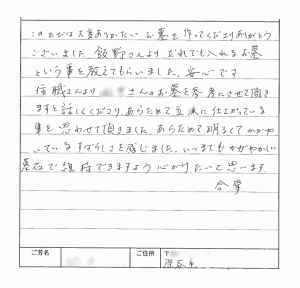 このたびは大変ありがたいお墓を作ってくださりありがとう
ございました。飯野さんより、だれでも入れるお墓
という事を教えてもらいました。安心です。
住職さんより さんのお墓を参考にさせて頂き
ますと話してくださり、あらためて立派に仕上がっている
事を思わせて頂きました。あらためて明るくてかがや
いているすばらしさを感じました。いつまでもかがやかしい
墓石で維持できますよう心がけたいと思います。
合掌
ご芳名
ご住所 〒